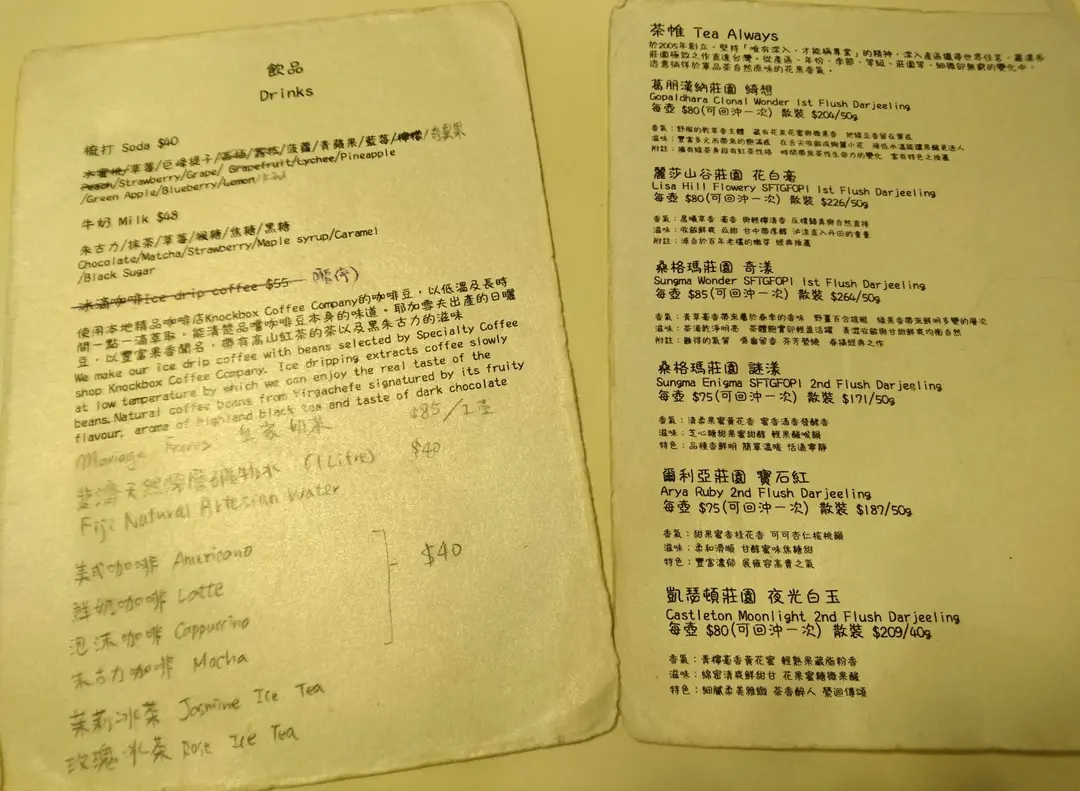 飲品
Drinks
梳打 Soda $40
水蜜桃/草莓/巨峰提子/西柚/荔枝/菠蘿/青蘋果/藍莓/檸檬/奇異果
Peach/Strawberry/Grape/ Grapefruit/Lychee/Pineapple
/Green Apple/Blueberry/Lemon/Kiwi
牛奶 Milk $48
朱古力/抹茶/草莓/楓糖/焦糖/黑糖
Chocolate/Matcha/Strawberry/Maple syrup/Caramel
/Black Sugar
冰滴咖啡Ice drip coffee $55 (暫停)
使用本地精品咖啡店Knockbox Coffee Company的咖啡豆，以低溫及長時
間一點一滴萃取，能清楚品嚐咖啡豆本身的味道。耶加雪夫出產的日曬
豆，以豐富果香聞名，帶有高山紅茶的茶以及黑朱古力的滋味
We make our ice drip coffee with beans selected by Specialty Coffee
shop Knockbox Coffee Company. Ice dripping extracts coffee slowly
at low temperature by which we can enjoy the real taste of the
beans.Natural coffee beans from Yirgachefe signatured by its fruity
flavour, aroma of highland black tea and taste of dark chocolate
Mariage Frères 皇家奶茶 $85/1壺
斐濟天然深層礦物水 (1 Litre) $40
Fiji Natural Artesian Water
美式咖啡 Americano
鮮奶咖啡 Latte
泡沫咖啡 Cappuccino
朱古力咖啡 Mocha
$40
茉莉冰茶 Jasmine Ice Tea
玫瑰冰茶 Rose Ice Tea
茶惟 Tea Always
於2005年創立，堅持「唯有深入，才能稱專業」的精神，深入產區遍尋世界佳茗，蒐漢各
莊園極致之作直達台灣。從產區、年份、季節、等級、莊園等，細微卻無窮的變化中，
恣意徜徉於單品茶自然原味的花果香氣。
葛朋漢納莊園 綺想
Gopaldhara Clonal Wonder 1st Flush Darjeeling
每壺 $80(可回沖一次) 散裝 $204/50g
麗莎山谷莊園 花白毫
Lisa Hill Flowery SFTGFOP1 1st Flush Darjeeling
每壺 $80(可回沖一次) 散裝 $226/50g
桑格瑪莊園 奇漾
Sungma Wonder SFTGFOP1 1st Flush Darjeeling
每壺 $85(可回沖一次) 散裝 $264/50g
桑格瑪莊園 謎漾
Sungma Enigma SFTGFOP1 2nd Flush Darjeeling
每壺 $75(可回沖一次) 散裝 $171/50g
香氣：清柔果蜜黃花香 蜜香酒香發酵香
滋味：芝心糖甜果蜜甜醇 輕果酸喉韻
特色：品種香鮮明 簡單溫暖 恬適寧靜
爾利亞莊園 寶石紅
Arya Ruby 2nd Flush Darjeeling
每壺 $75(可回沖一次) 散裝 $187/50g
香氣：甜果蜜香桂花香 可可杏仁核桃韻
滋味：柔和滑順 甘醇蜜味焦糖甜
特色：豐富濃郁 展雍容高貴之氣
凱瑟頓莊園 夜光白玉
Castleton Moonlight 2nd Flush Darjeeling
每壺 $80(可回沖一次) 散裝 $209/40g
香氣：青檸毫香黃花蜜 輕熟果藏脂粉香
滋味：綿密清爽鮮甜甘 花果蜜糖微果酸
特色：細膩柔美雅緻 茶香醉人 縈迴傳頌